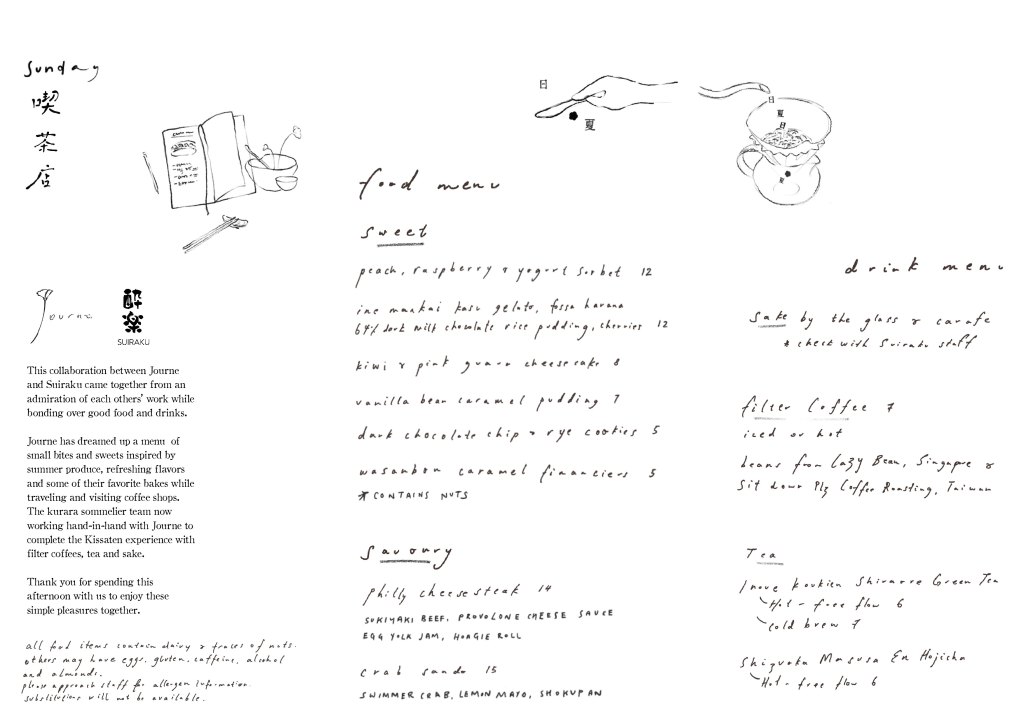 sunday
喫
茶
店
Journe
酔
楽
SUIRAKU
This collaboration between Journe
and Suiraku came together from an
admiration of each others' work while
bonding over good food and drinks.
Journe has dreamed up a menu of
small bites and sweets inspired by
summer produce, refreshing flavors
and some of their favorite bakes while
traveling and visiting coffee shops.
The kurara sommelier team now
working hand-in-hand with Journe to
complete the Kissaten experience with
filter coffees, tea and sake.
Thank you for spending this
afternoon with us to enjoy these
simple pleasures together.
all food items contain dairy & traces of nuts.
others may have eggs, gluten, caffeine, alcohol
and almonds.
please approach staff for allergen information.
substitutions will not be available.
日
夏
food menu
sweet
peach, raspberry & yogurt sorbet 12
ine mankai kasu gelato, fossa havana
64% dark milk chocolate rice pudding, cherries 12
kiwi & pink guava cheesecake 8
vanilla bean caramel pudding 7
dark chocolate chip & rye cookies 5
wasanbon caramel financiers 5
* CONTAINS NUTS
savoury
philly cheesesteak 14
SUKIYAKI BEEF, PROVOLONE CHEESE SAUCE
EGG YOLK JAM, HOAGIE ROLL
crab sando 15
SWIMMER CRAB, LEMON MAYO, SHOKUPAN
日
夏
日
drink menu
sake by the glass & carafe
* check with Suiraku staff
filter coffee 7
iced or hot
beans from Lazy Bean, Singapore &
Sit Down Plz Coffee Roasting, Taiwan
Tea
Inoue Koukien Shiraore Green Tea
Hot - free flow 6
cold brew 7
Shizuoka Masusa En Hojicha
Hot - free flow 6